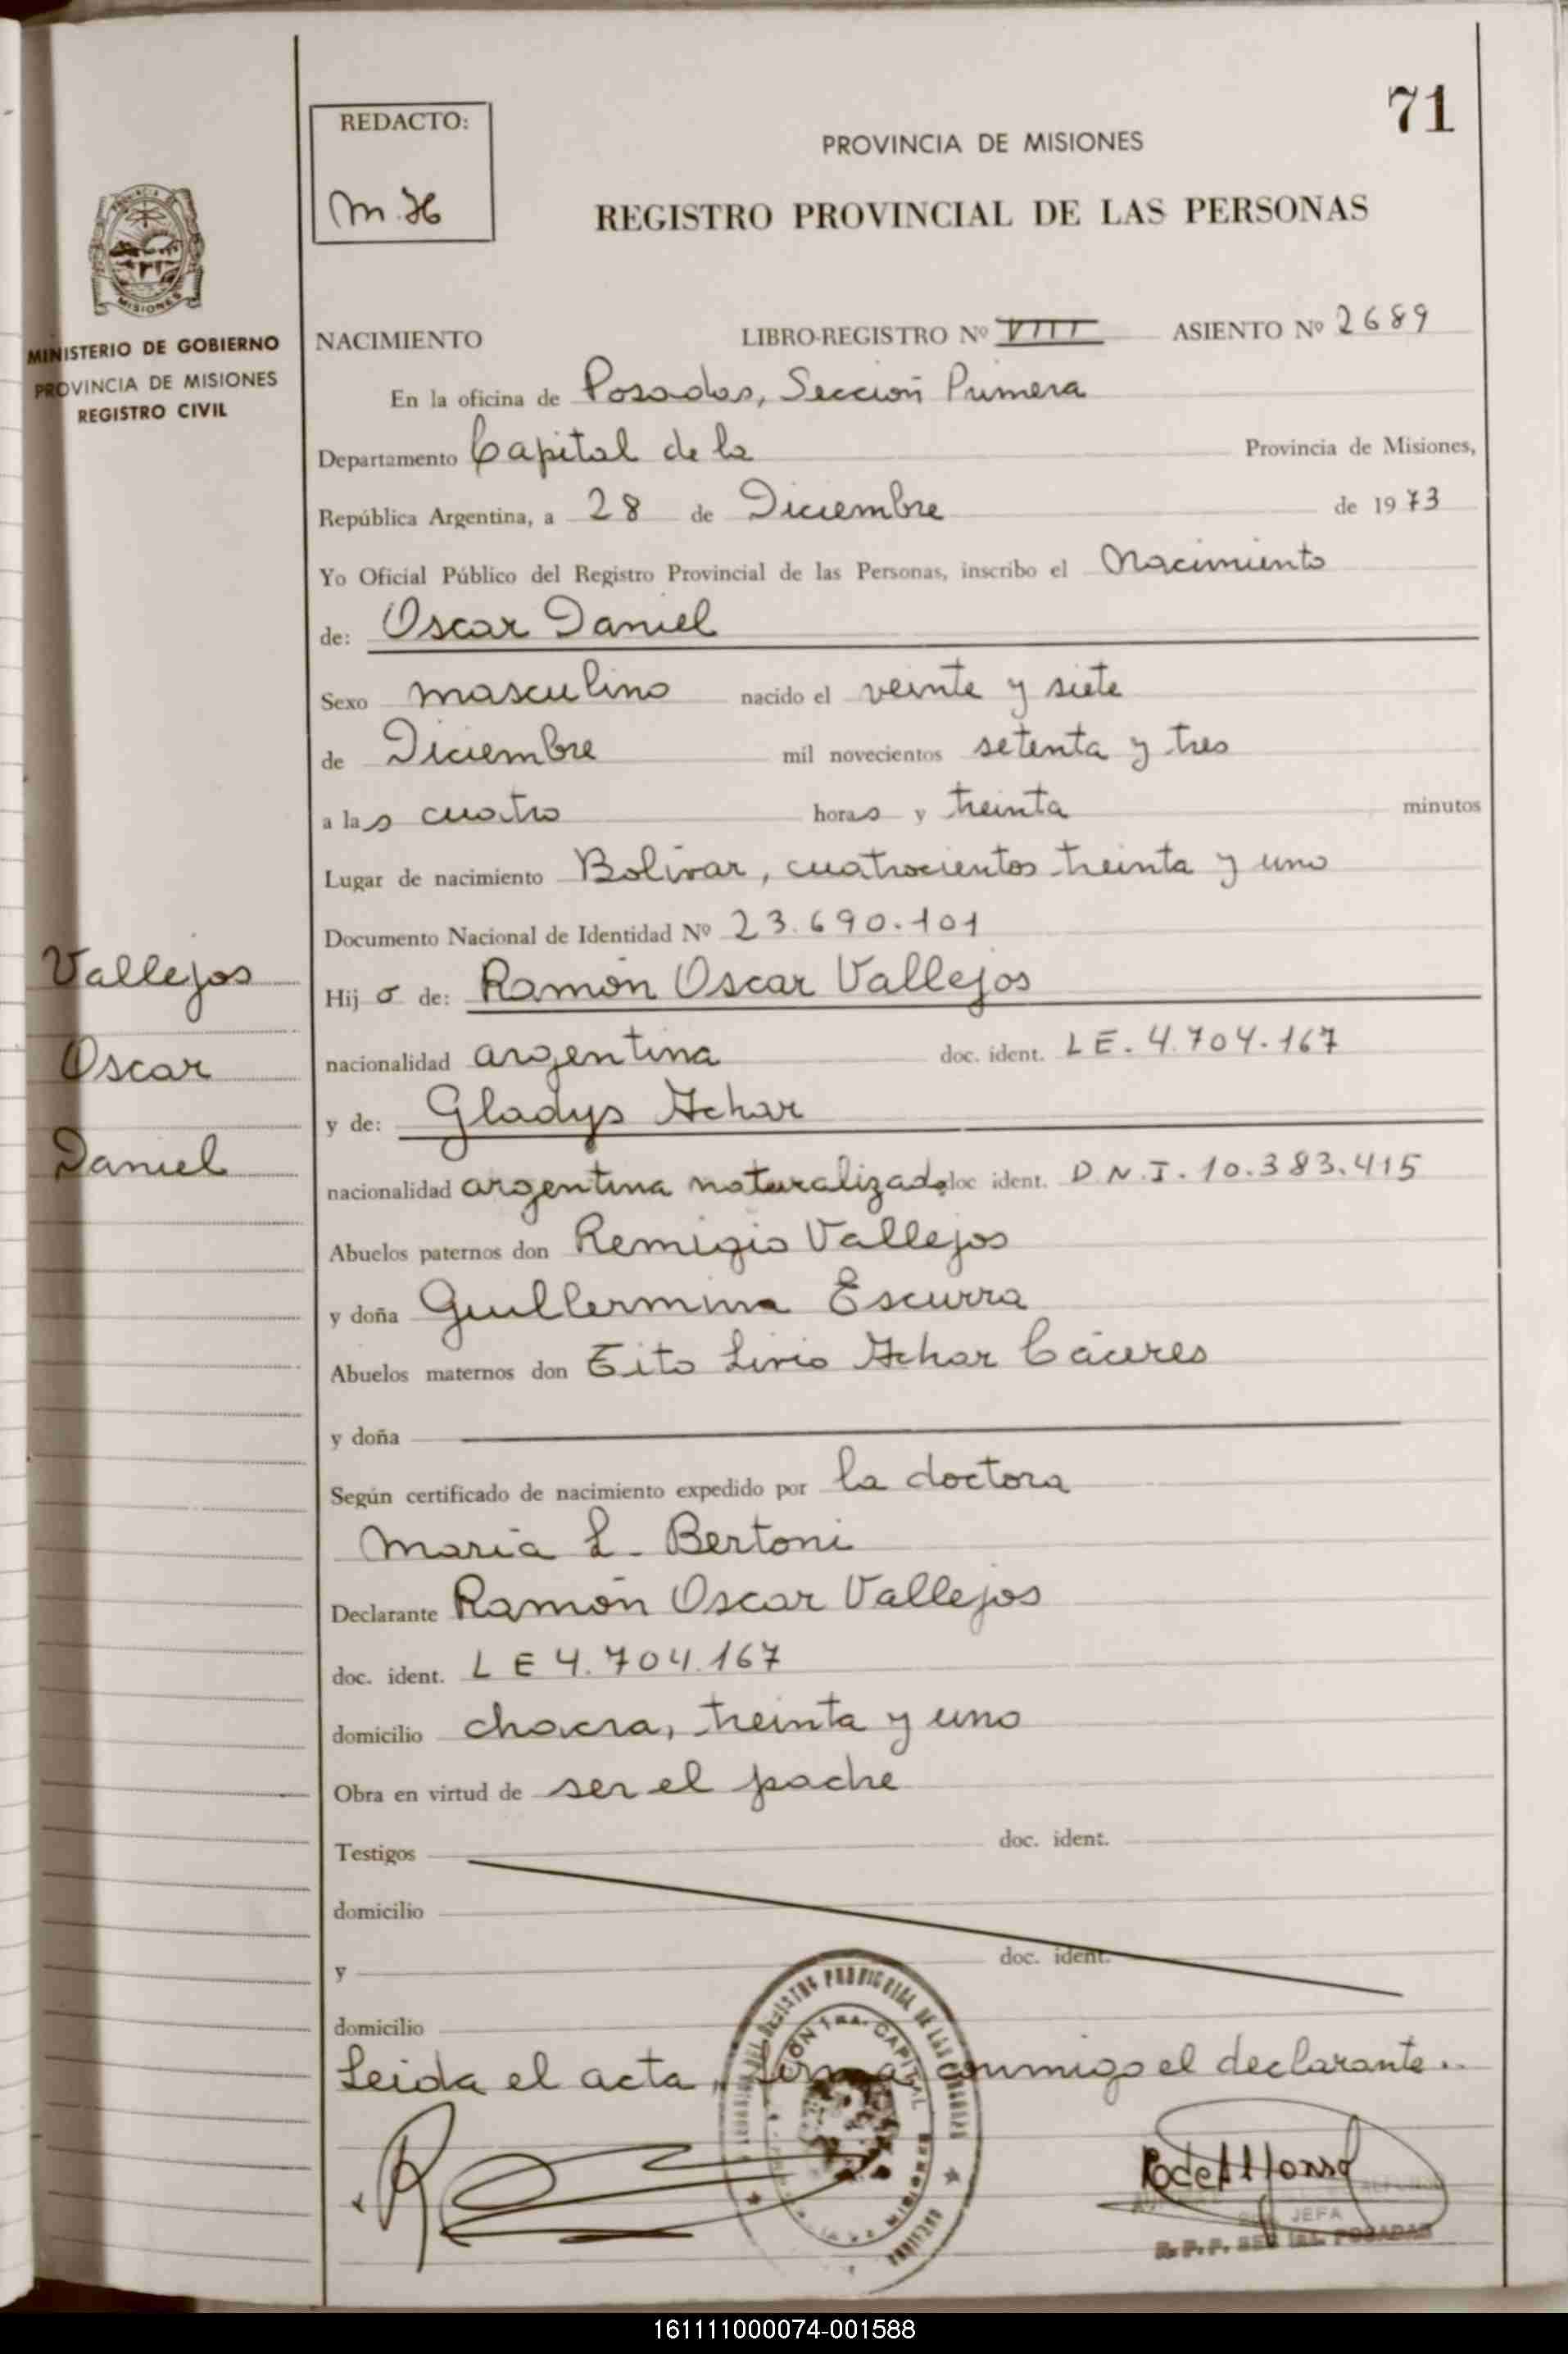 71
REDACTO:
M.H
PROVINCIA DE MISIONES
REGISTRO PROVINCIAL DE LAS PERSONAS
MISIONES
MINISTERIO DE GOBIERNO
PROVINCIA DE MISIONES
REGISTRO CIVIL
NACIMIENTO LIBRO-REGISTRO Nº VIII ASIENTO Nº 2689
En la oficina de Posadas, Sección Primera
Departamento Capital de la Provincia de Misiones,
República Argentina, a 28 de Diciembre de 1973
Yo Oficial Público del Registro Provincial de las Personas, inscribo el Nacimiento
de: Oscar Daniel
Sexo masculino nacido el veinte y siete
de Diciembre mil novecientos setenta y tres
a las cuatro horas y treinta minutos
Lugar de nacimiento Bolívar, cuatrocientos treinta y uno
Documento Nacional de Identidad Nº 23.690.101
Vallejos
Oscar
Daniel
Hijo de: Ramón Oscar Vallejos
nacionalidad argentina doc. ident. LE. 4.704.167
y de: Gladys Achar
nacionalidad argentina naturalizada doc ident. D N.I. 10.383.415
Abuelos paternos don Remigio Vallejos
y doña Guillermina Escurra
Abuelos maternos don Tito Livio Achar Cáceres
y doña
Según certificado de nacimiento expedido por la doctora
María L. Bertoni
Declarante Ramón Oscar Vallejos
doc. ident. L E 4.704.167
domicilio chacra, treinta y uno
Obra en virtud de ser el padre
Testigos doc. ident.
domicilio
y doc. ident.
domicilio
Leida el acta, firma conmigo el declarante..
JEFA
R.P.P. SEC 1ra. POSADAS
161111000074-001588